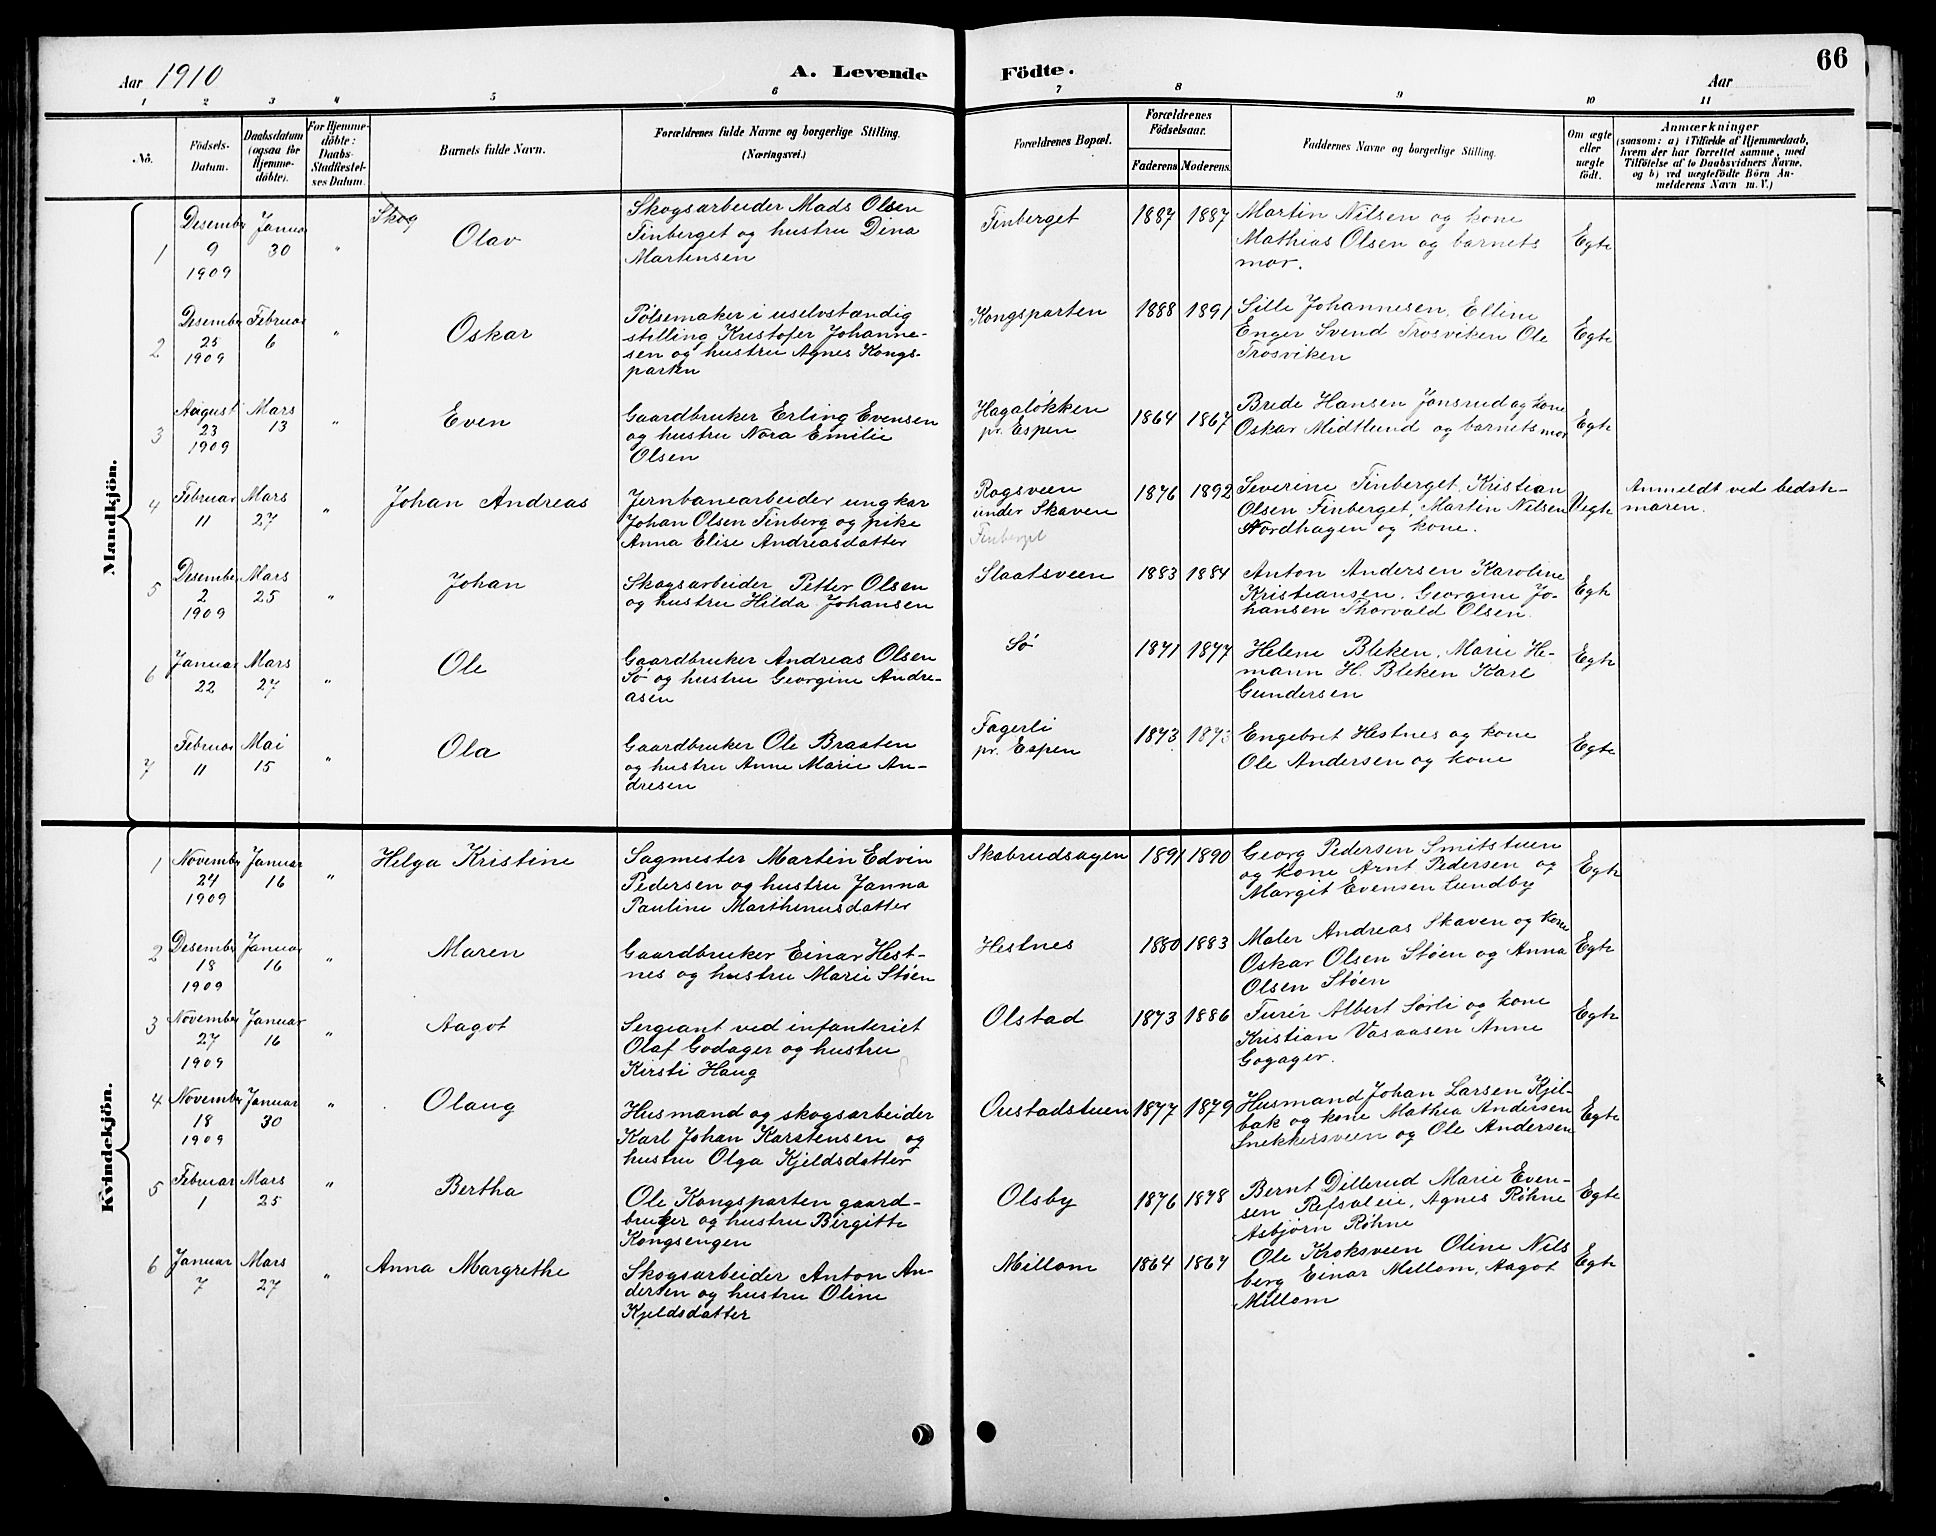 Aar 1910
A. Levende
Födte.
Aar
66
1 2 3 4 5 6 7 8 9 10 11
No.
Födsels-
Datum.
Daabsdatum
(ogsaa for
Hjemme-
döbte).
For Hjemme-
döbte:
Daabs-
Stadfæstel-
ses Datum.
Barnets fulde Navn.
Forældrenes fulde Navne og borgerlige Stilling.
(Næringsvei.)
Forældrenes Bopæl.
Forældrenes
Födselsaar.
Faderens. Moderens.
Faddernes Navne og borgerlige Stilling.
Om ægte
eller
uægte
födt.
Anmærkninger
(saasom: a) i Tilfælde af Hjemmedaab,
hvem der har forrettet samme, med
Tilföielse af to Daabsvidners Navne,
og b) ved uægtefödte Börn An-
melderens Navn m. V.)
Mandkjön.
1
Desember
9
1909
Januar
30
"
Skog
Olav
Skogsarbeider Mads Olsen
Finberget og hustru Dina
Martensen
Finberget
1887 1887
Martin Nilsen og kone
Mathias Olsen og barnets
mor.
Egte
2
Desember
25
1909
Februar
6
"
Oskar
Pølsemaker i uselvstændig
stilling Kristofer Johanne-
sen og hustru Agnes Kongs-
parten
Kongsparten
1888 1891
Sille Johannesen, Elline
Enger Svend Trosviken Ole
Trosviken
Egte
3
August
23
1909
Mars
13
"
Even
Gaardbruker Erling Evensen
og hustru Nora Emilie
Olsen
Hagaløkken
pr. Espen
1864 1867
Brede Hansen Jonsrud og kone
Oskar Midtlund og barnets mor
Egte
4
Februar
11
Mars
27
"
Johan Andreas
Jernbanearbeider ungkar
Johan Olsen Finberg og pike
Anna Elise Andreasdatter
Rogsveen
under Skaven
Finberget
1876 1892
Severine Finberget, Kristian
Olsen Finberget, Martin Nilsen
Nordhagen og kone.
Uegte
Anmeldt ved bedste-
moren.
5
Desember
2
1909
Mars
25
"
Johan
Skogsarbeider Petter Olsen
og hustru Hilda Johansen
Slaatsveen
1883 1884
Anton Andersen Karoline
Kristiansen, Georgine Jo-
hansen Thorvald Olsen.
Egte
6
Januar
22
Mars
27
"
Ole
Gaardbruker Andreas Olsen
Sø og hustru Georgine Andre-
asen
Sø
1871 1877
Helene Bleken, Marie He-
mann H. Bleken Karl
Gundersen
Egte
7
Februar
11
Mai
15
"
Ola
Gaardbruker Ole Braaten
og hustru Anne Marie An-
dresen
Fagerli
pr. Espen
1873 1873
Engebret Hestnes og kone
Ole Andersen og kone
Egte
Kvindekjön.
1
November
24
1909
Januar
16
"
Helga Kristine
Sagmester Martin Edvin
Pedersen og hustru Janna
Pauline Marthinusdatter
Skabrudsagen
1891 1890
Georg Pedersen Smitstuen
og kone Arnt Pedersen og
Margit Evensen Lundby
Egte
2
Desember
18
1909
Januar
16
"
Maren
Gaardbruker Einar Hest-
nes og hustru Marie Støen
Hestnes
1880 1883
Maler Andreas Skaven og kone
Oskar Olsen Støen og Anna
Olsen Støen
Egte
3
November
27
1909
Januar
16
"
Aagot
Sergeant ved infanteriet
Olaf Godager og hustru
Kirsti Haug
Olstad
1873 1886
Furer Albert Sørli og kone
Kristian Vasaasen Anne
Gogager.
Egte
4
November
18
1909
Januar
30
"
Olaug
Husmand og skogsarbeider
Karl Johan Karstensen og
hustru Olga Kjeldsdatter
Oustadstuen
1877 1879
Husmand Johan Larsen Kjel-
bak og kone Mathea Andersen
Snekkersveen og Ole Andersen
Egte
5
Februar
1
Mars
25
"
Bertha
Ole Kongsparten gaard-
bruker og hustru Birgitte
Kongsengen
Olsby
1876 1878
Bernt Dillerud Marie Even-
sen Refsaleie, Agnes Røhne
Asbjørn Røhne
Egte
6
Januar
7
Mars
27
"
Anna Margrethe
Skogsarbeider Anton An-
dersen og hustru Oline
Kjeldsdatter
Millom
1864 1867
Ole Kroksveen Oline Nils
berg Einar Millom, Aagot
Millom
Egte